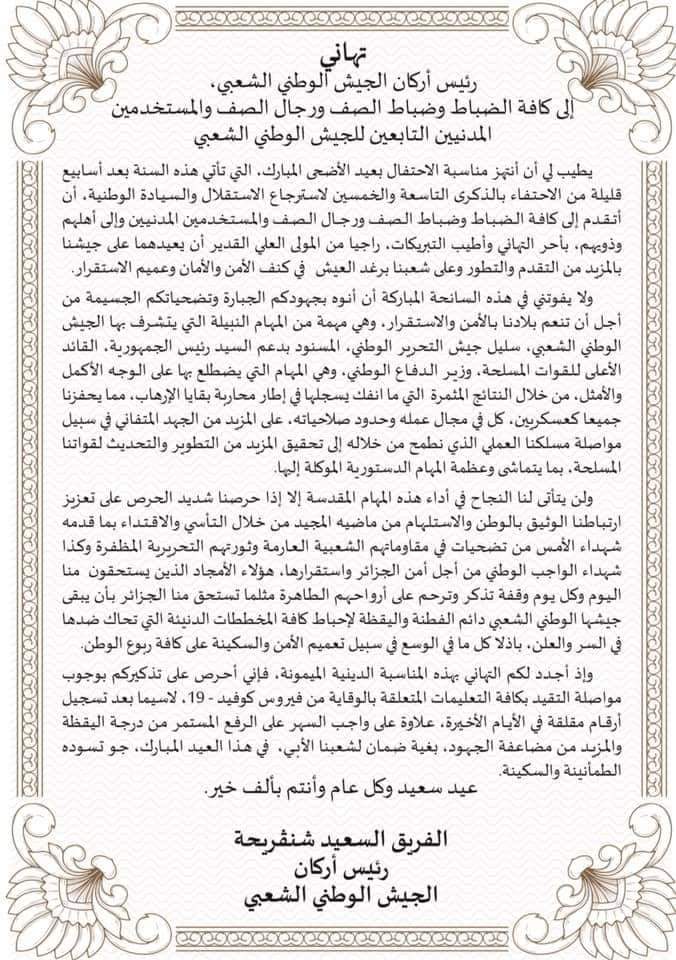 تهاني
رئيس أركان الجيش الوطني الشعبي،
إلى كافة الضباط وضباط الصف ورجال الصف والمستخدمين
المدنيين التابعين للجيش الوطني الشعبي
يطيب لي أن أنتهز مناسبة الاحتفال بعيد الأضحى المبارك، التي تأتي هذه السنة بعد أسابيع
قليلة من الاحتفاء بالذكرى التاسعة والخمسين لاسترجاع الاستقلال والسيادة الوطنية، أن
أتقدم إلى كافة الضباط وضباط الصف ورجال الصف والمستخدمين المدنيين وإلى أهلهم
وذويهم، بأحر التهاني وأطيب التبريكات، راجيا من المولى العلي القدير أن يعيدهما على جيشنا
بالمزيد من التقدم والتطور وعلى شعبنا برغد العيش في كنف الأمن والأمان وعميم الاستقرار.
ولا يفوتني في هذه السانحة المباركة أن أنوه بجهودكم الجبارة وتضحياتكم الجسيمة من
أجل أن تنعم بلادنا بالأمن والاستقرار، وهي مهمة من المهام النبيلة التي يتشرف بها الجيش
الوطني الشعبي، سليل جيش التحرير الوطني، المسنود بدعم السيد رئيس الجمهورية، القائد
الأعلى للقوات المسلحة، وزير الدفاع الوطني، وهي المهام التي يضطلع بها على الوجه الأكمل
والأمثل، من خلال النتائج المثمرة التي ما انفك يسجلها في إطار محاربة بقايا الإرهاب، مما يحفزنا
جميعا كعسكريين، كل في مجال عمله وحدود صلاحياته، على المزيد من الجهد المتفاني في سبيل
مواصلة مسلكنا العملي الذي نطمح من خلاله إلى تحقيق المزيد من التطوير والتحديث لقواتنا
المسلحة، بما يتماشى وعظمة المهام الدستورية الموكلة إليها.
ولن يتأتى لنا النجاح في أداء هذه المهام المقدسة إلا إذا حرصنا شديد الحرص على تعزيز
ارتباطنا الوثيق بالوطن والاستلهام من ماضيه المجيد من خلال التأسي والاقتداء بما قدمه
شهداء الأمس من تضحيات في مقاوماتهم الشعبية العارمة وثورتهم التحريرية المظفرة وكذا
شهداء الواجب الوطني من أجل أمن الجزائر واستقرارها، هؤلاء الأمجاد الذين يستحقون منا
اليوم وكل يوم وقفة تذكر وترحم على أرواحهم الطاهرة مثلما تستحق منا الجزائر بأن يبقى
جيشها الوطني الشعبي دائم الفطنة واليقظة لإحباط كافة المخططات الدنيئة التي تحاك ضدها
في السر والعلن، باذلا كل ما في الوسع في سبيل تعميم الأمن والسكينة على كافة ربوع الوطن.
وإذ أجدد لكم التهاني بهذه المناسبة الدينية الميمونة، فإني أحرص على تذكيركم بوجوب
مواصلة التقيد بكافة التعليمات المتعلقة بالوقاية من فيروس كوفيد - 19، لاسيما بعد تسجيل
أرقام مقلقة في الأيام الأخيرة، علاوة على واجب السهر على الرفع المستمر من درجة اليقظة
والمزيد من مضاعفة الجهود، بغية ضمان لشعبنا الأبي، في هذا العيد المبارك، جو تسوده
الطمأنينة والسكينة.
عيد سعيد وكل عام وأنتم بألف خير.
الفريق السعيد شنڤريحة
رئيس أركان
الجيش الوطني الشعبي